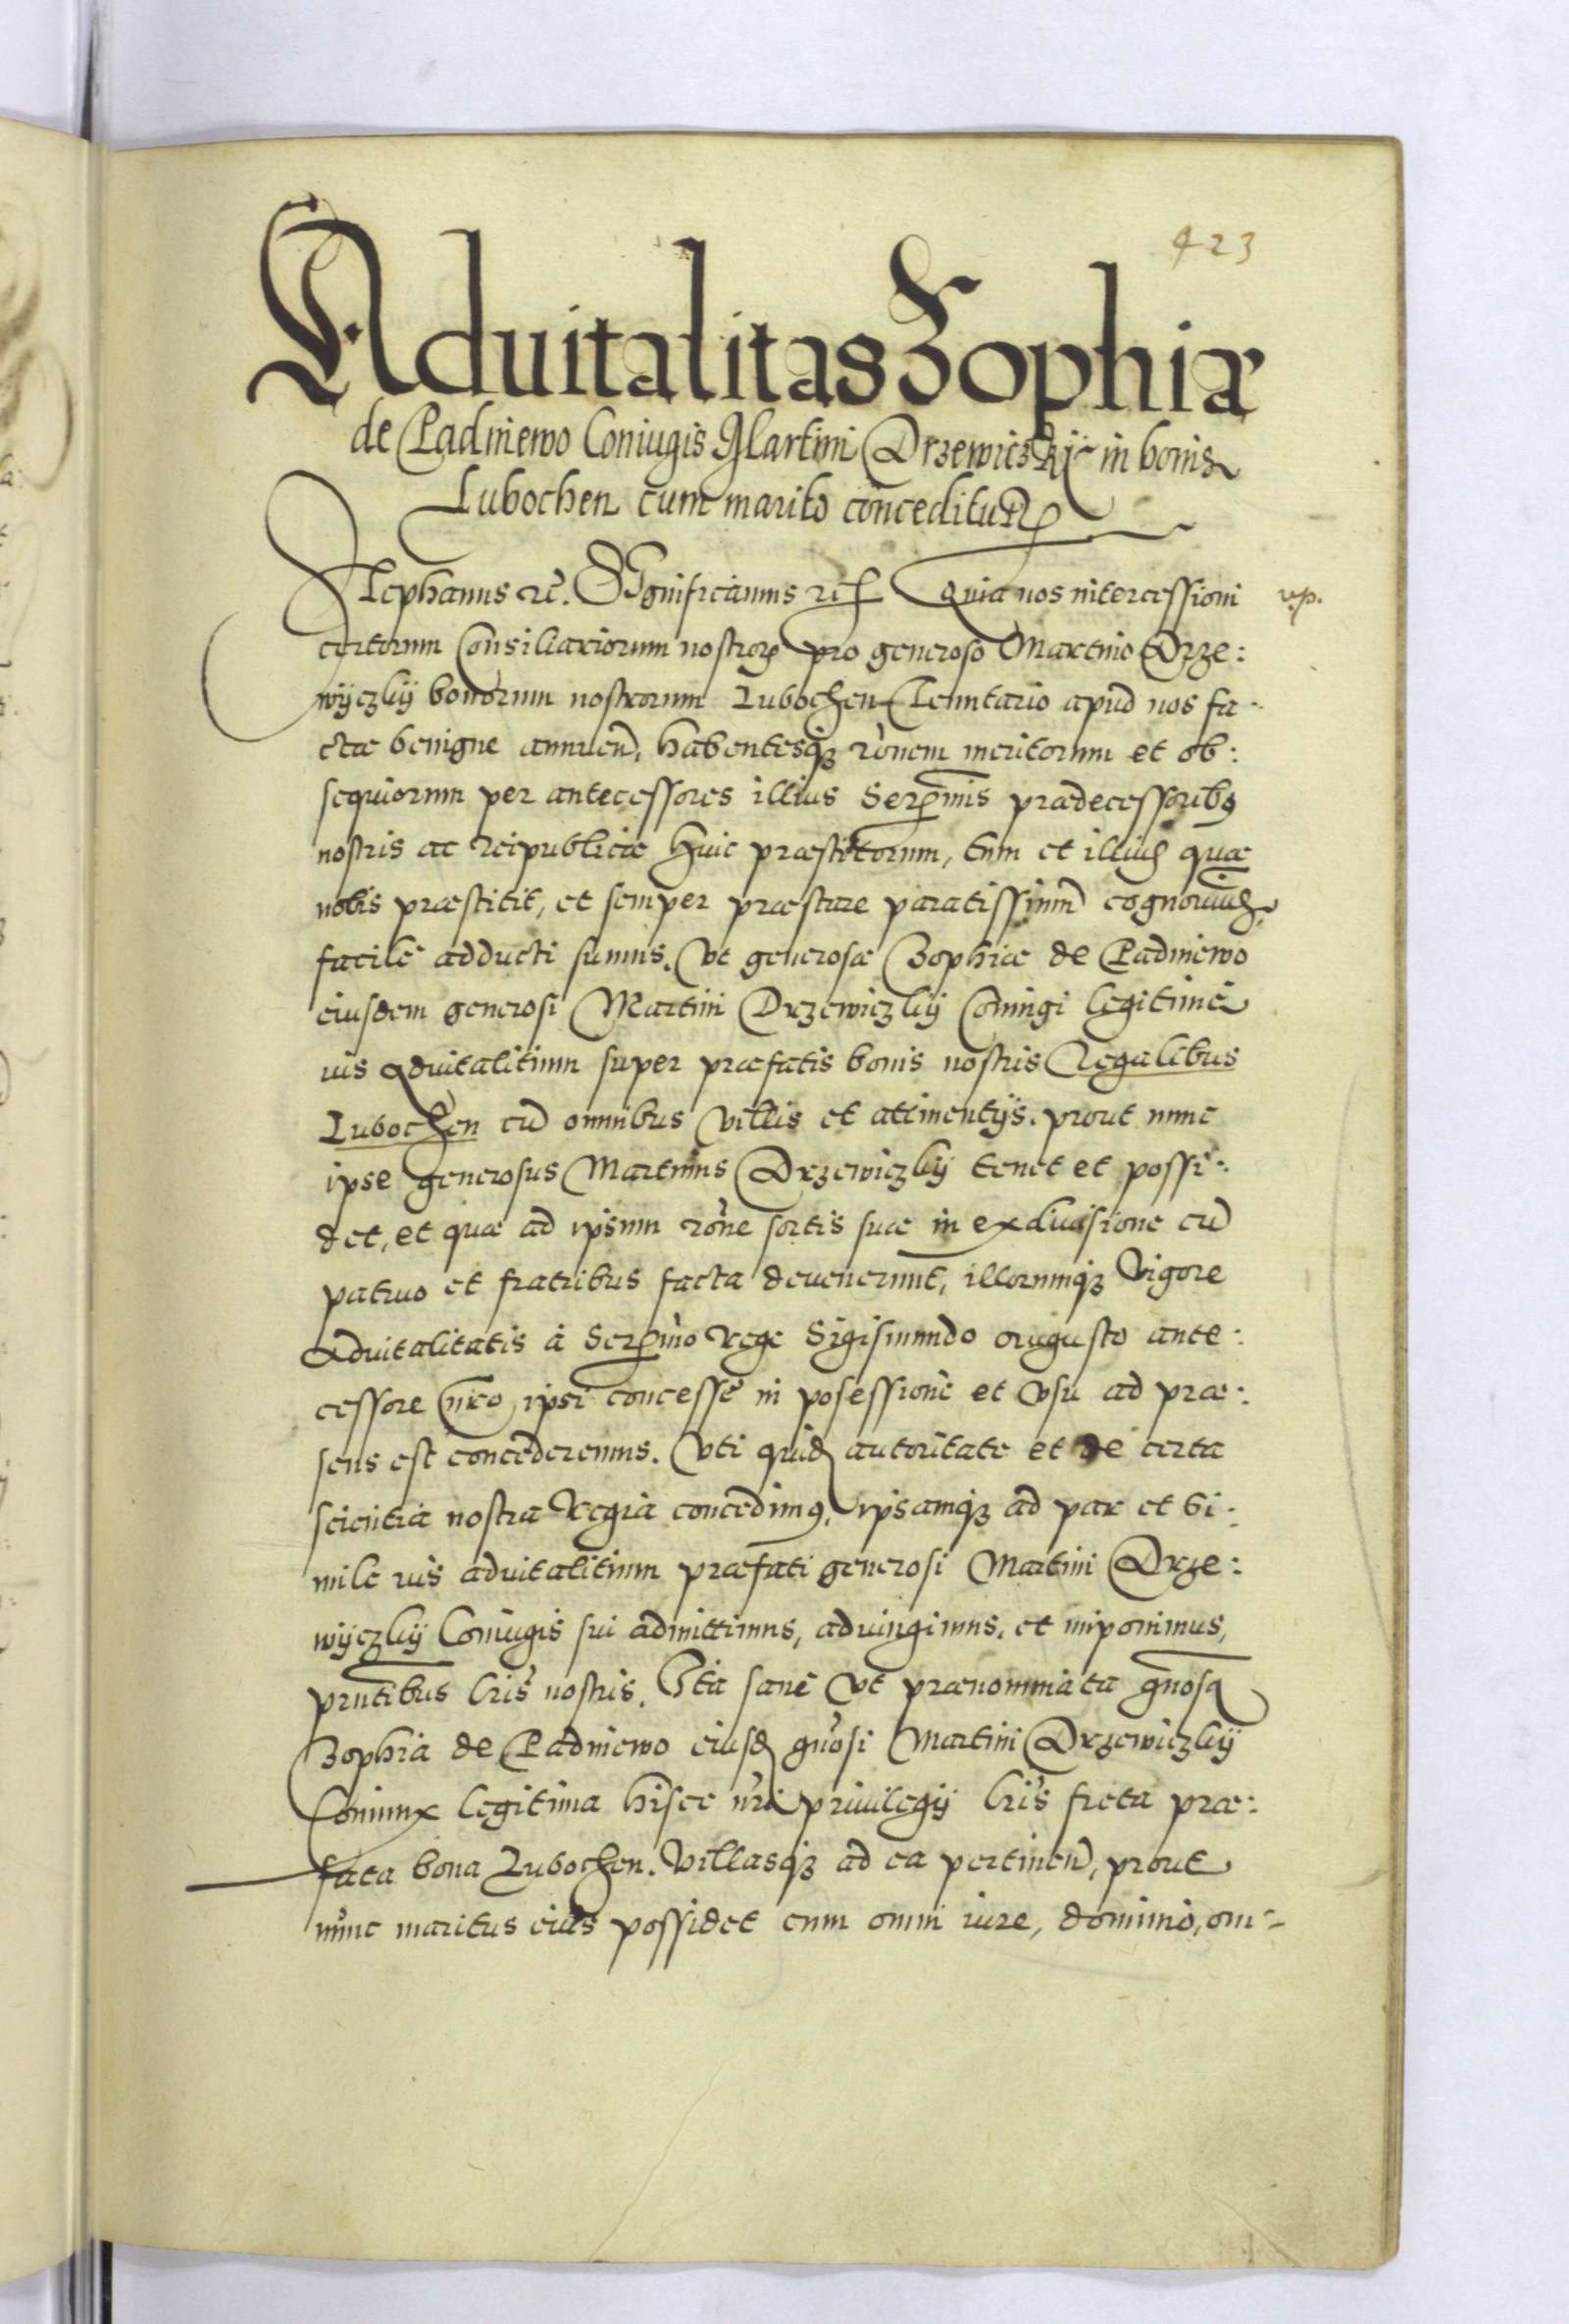 423
Aduitalitas Zophiæ
de Padniewo Coniugis Martini Drzewiczkij in bonis
Lubochen cum marito conceditur
Stephanus etc. Significamus etc. Quia nos intercessioni
v.p.
certorum Consiliariorum nostrorum pro generoso Martino Drze:
wijczkij bonorum nostrorum Lubochen Tenutario apud nos fa-
ctæ benigne annuen, habentesq3 rõnem meritorum et ob:
sequiorum per antecessores illius Serenmis prædecessoribus
nostris ac Reipublicæ huic præstitorum, tum et illius quæ
nobis præstitit, et semper præstare paratissimũ cognouimus,
facile adducti sumus. Vt generosæ Zophiæ de Padniewo
eiusdem generosi Martini Drzewiczkij Coniugi legitimæ
ius aduitalitium super præfatis bonis nostris Regalibus
Lubochen cũ omnibus villis et attinentijs, prout nunc
ipse generosus Martinus Drzewiczkij tenet et possi:
det, et quæ ad ipsum rõne sortis suæ in exdiuisione cũ
patruo et fratribus facta deuenerunt, illorumq3 vigore
aduitalitatis à Serenmo Rege Sigismundo Augusto ante:
cessore nro, ipsi concessæ in posessione et vsu ad præ:
sens est concederemus. Vti quidem autoritate et de certa
scientia nostra Regia concedimus, ipsamq3 ad par et si:
mile ius aduitalitium præfati generosi Martini Drze:
wijczkij Coniugis sui admittimus, adiungimus, et imponimus,
prntibus lris nostris. Ita sanè vt prænominata gnosa
Zophia de Padniewo eiusdem gnosi Martini Drzewiczkij
Coniunx legitima hisce nri priuilegij lris freta præ:
fata bona Lubochen. Villasq3 ad ea pertinen, prout
nunc maritus eius possidet cum omni iure, dominio, om-